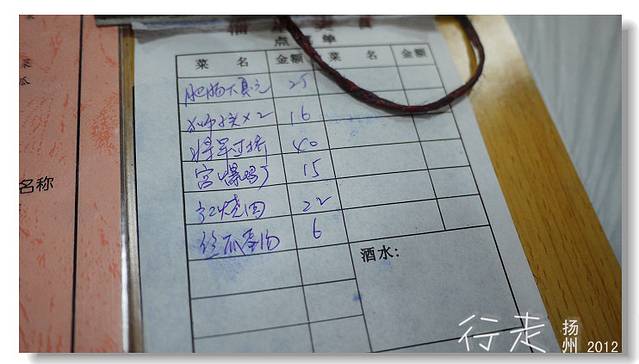 点菜单
菜 名 金额 菜 名 金额
肥肠 25
狮子头×2 16
将军过桥 40
宫爆鸡丁 15
红烧肉 22
丝瓜蛋汤 6
酒水:
名称
行走 扬州 2012